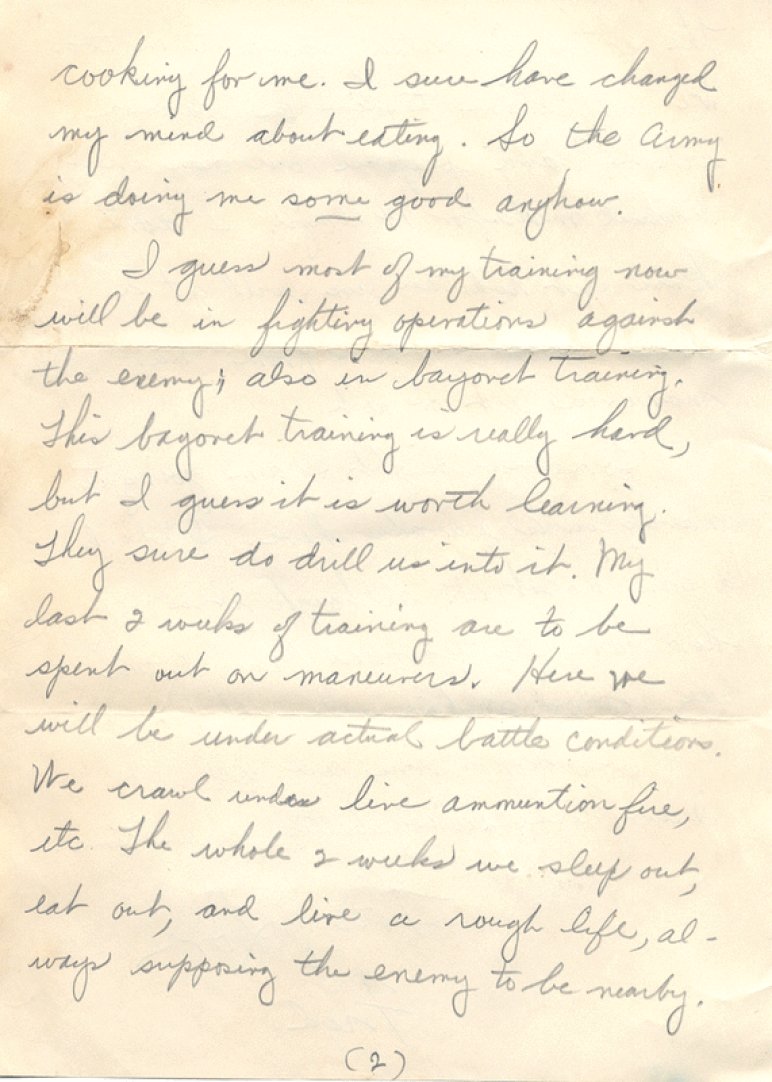 cooking for me. I sure have changed
my mind about eating. So the Army
is doing me some good anyhow.
I guess most of my training now
will be in fighting operations against
the enemy; also in bayonet training.
This bayonet training is really hard,
but I guess it is worth learning.
They sure do drill us into it. My
last 2 weeks of training are to be
spent out on maneuvers. Here we
will be under actual battle conditions.
We crawl under live ammuntion fire,
etc. The whole 2 weeks we sleep out,
eat out, and live a rough life, al-
ways supposing the enemy to be nearby.
(2)